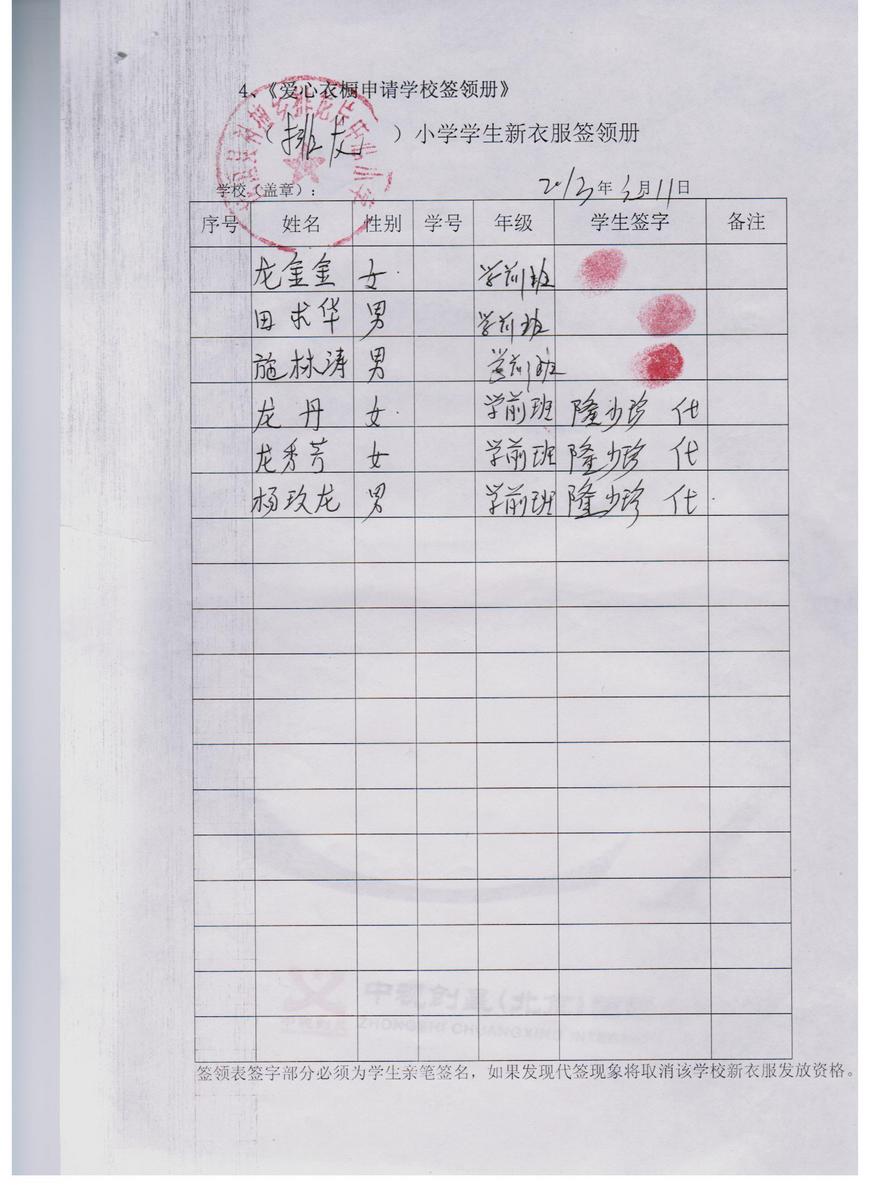 4、《爱心衣橱申请学校签领册》
（排友）小学学生新衣服签领册
学校（盖章）：
2013年3月11日
序号 姓名 性别 学号 年级 学生签字 备注
龙金金 女 学前班
田求华 男 学前班
施林涛 男 学前班
龙丹 女 学前班 隆少珍 代
龙秀芳 女 学前班 隆少珍 代
杨玖龙 男 学前班 隆少珍 代
中视创星(北京)
ZHONGSHI CHUANGXING INTER
签领表签字部分必须为学生亲笔签名，如果发现代签现象将取消该学校新衣服发放资格。